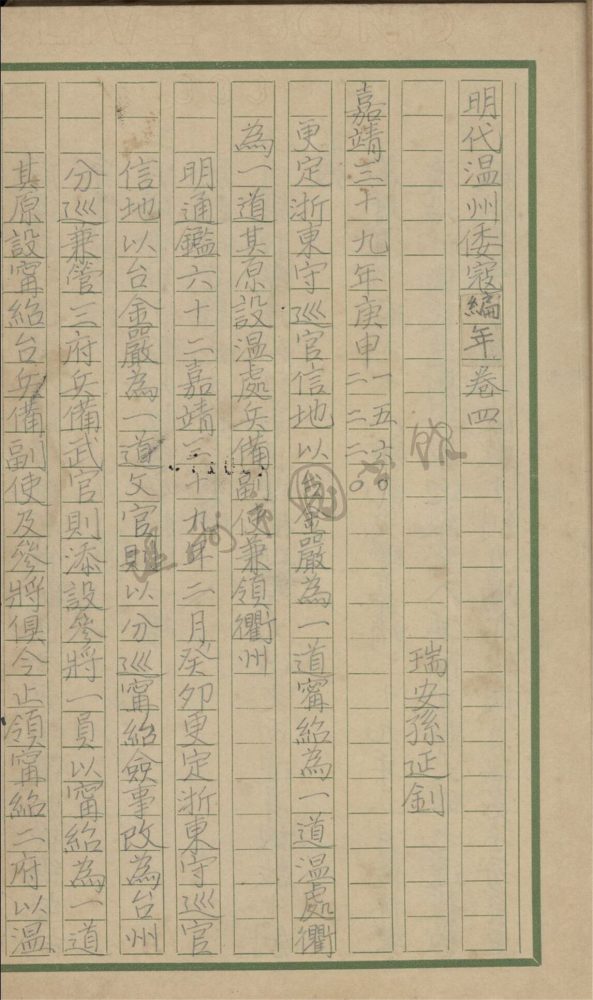 明代温州倭寇編年卷四
瑞安孫延釗
嘉靖三十九年庚申 一五六〇 二二二〇
更定浙東守巡官信地以台金嚴為一道寗紹為一道温處衢
為一道其原設温處兵備副使兼領衢州
明通鑑六十二嘉靖三十九年二月癸卯更定浙東守巡官
信地以台金嚴為一道文官則以分巡寗紹僉事改為台州
分巡兼管三府兵備武官則添設參將一員以寗紹為一道
其原設寗紹台兵備副使及參將俱令止領寗紹二府以温